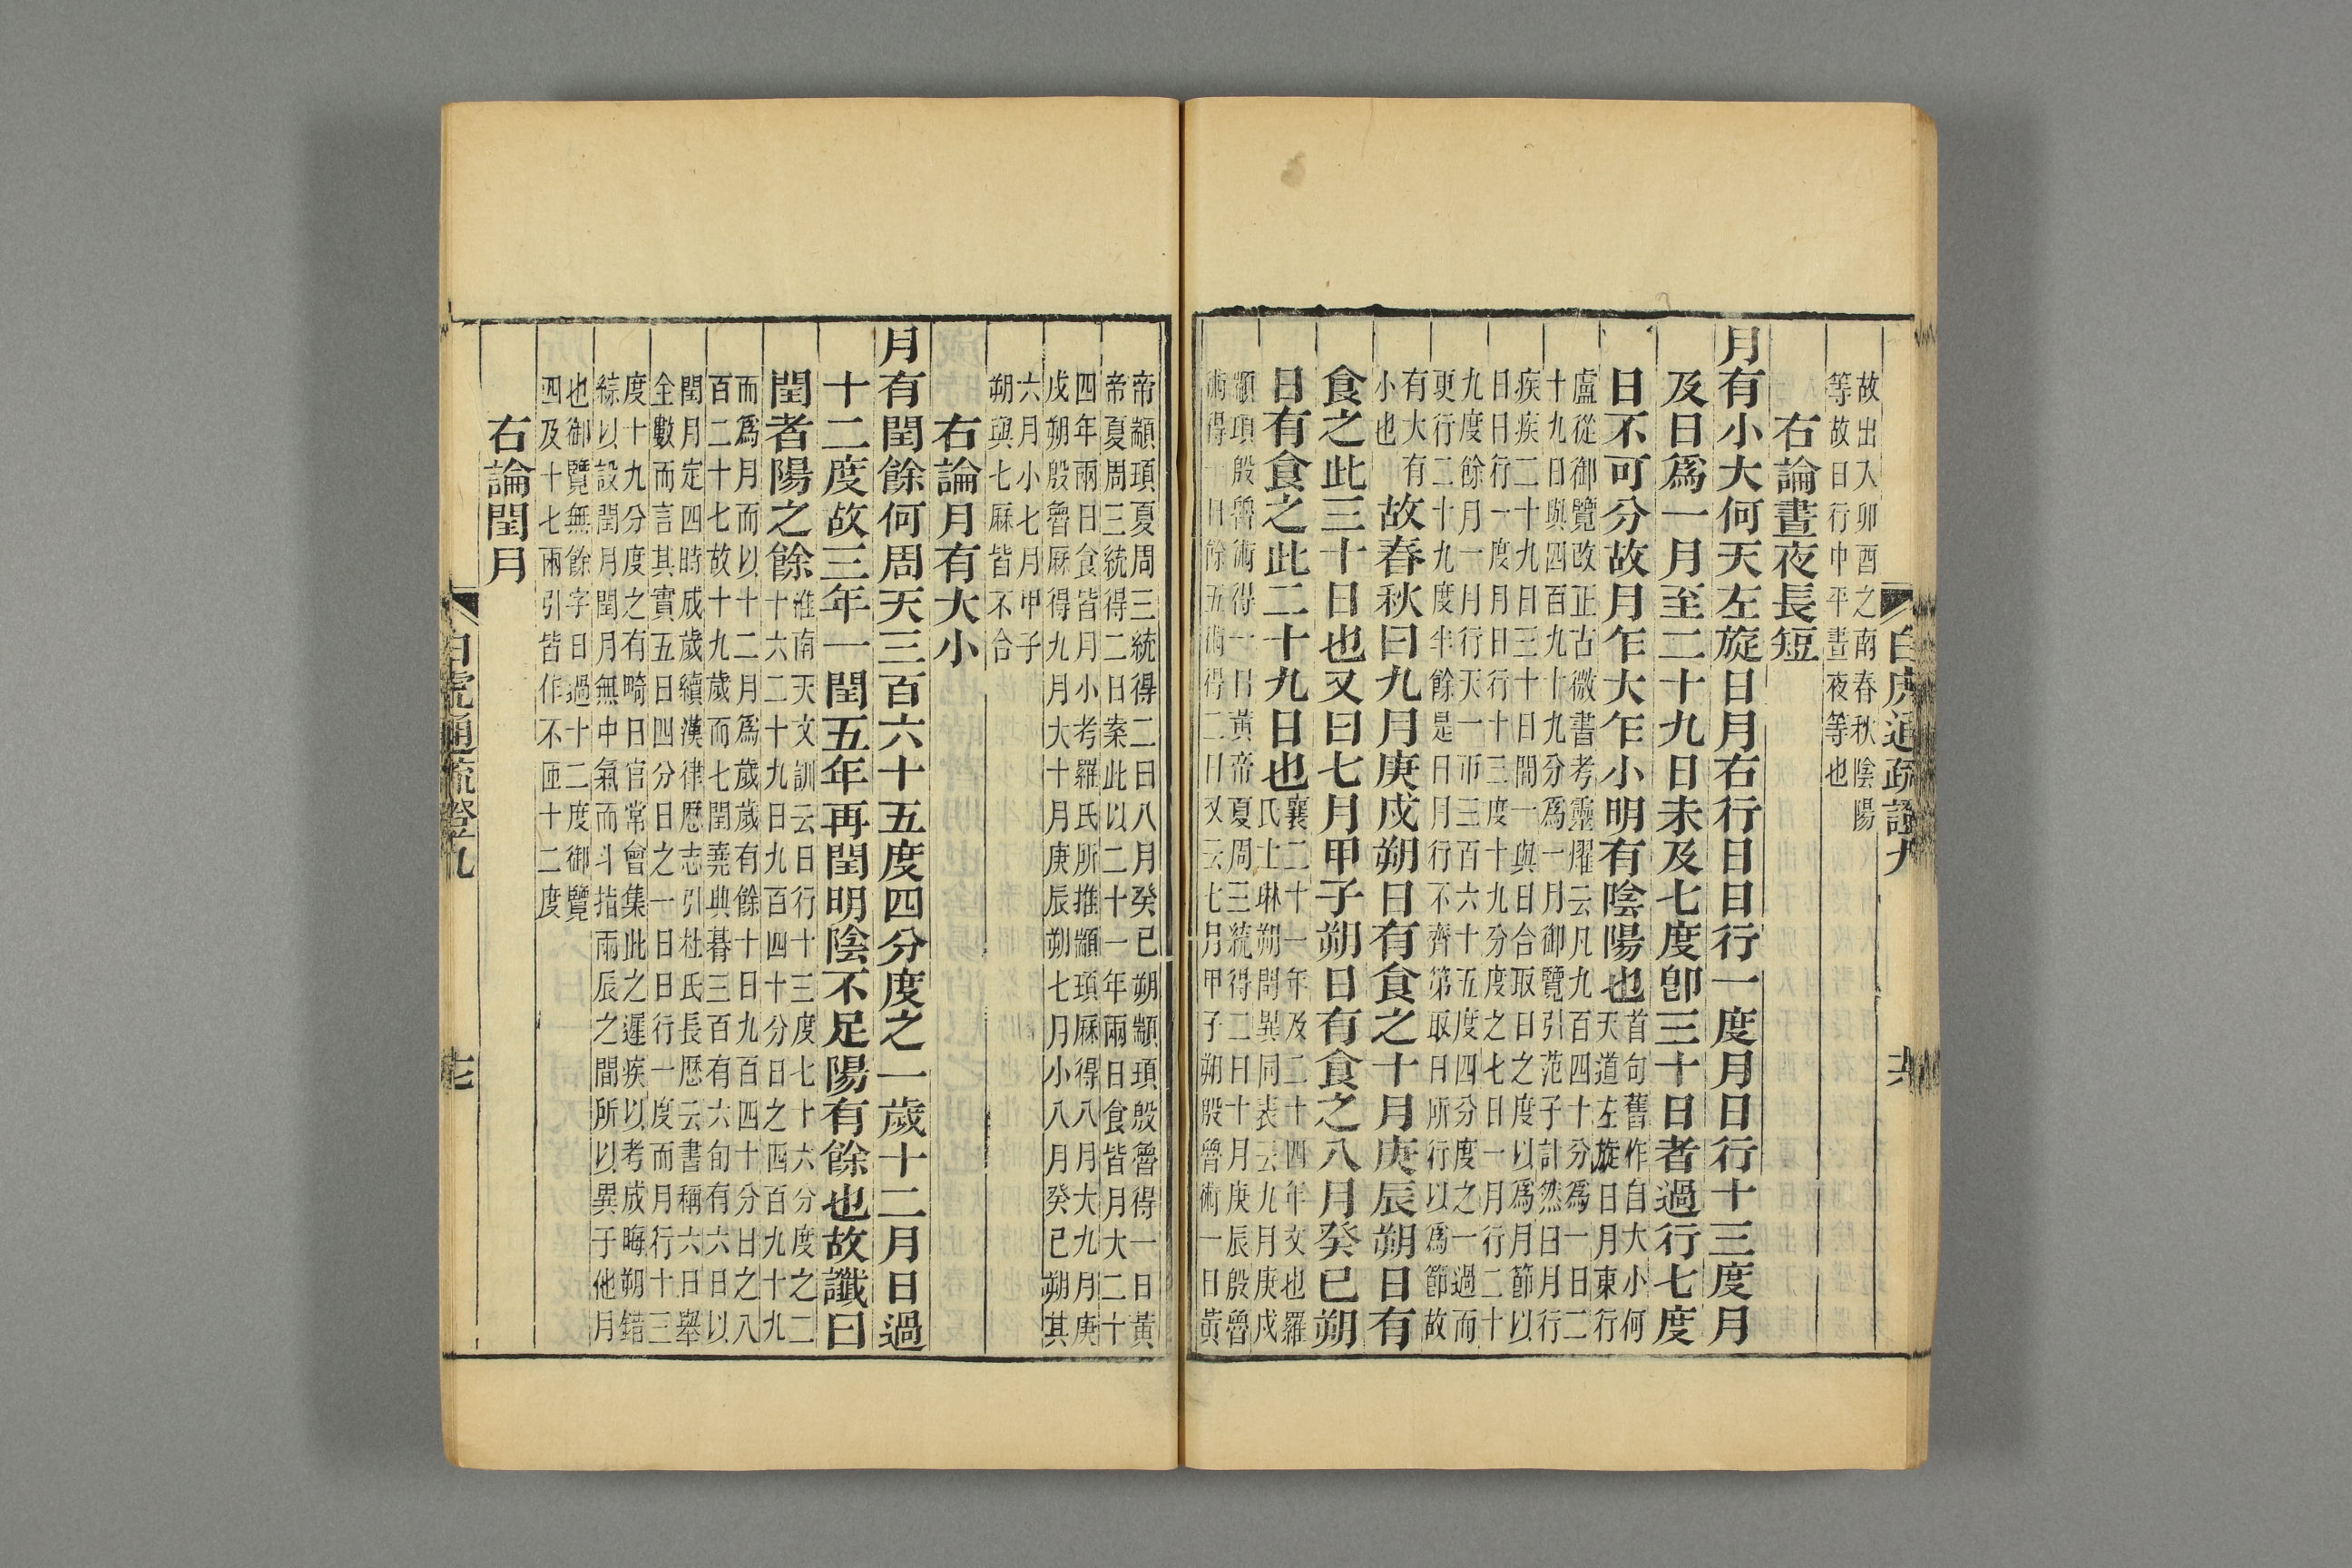 白虎通疏證九
六
故出入卯酉之南春秋陰陽
等故日行中平晝夜等也
右論晝夜長短
月有小大何天左旋日月右行日日行一度月日行十三度月
及日爲一月至二十九日未及七度卽三十日者過行七度
日不可分故月乍大乍小明有陰陽也
首句舊作自大小何
天道左旋日月東行
盧從御覽改正古微書考靈燿云凡九百四十分爲一日二
十九日與四百九十九分爲一月御覽引范子計然曰月行
疾疾二十九日三十日間一與日合取日之度以爲月節以
日日行一度月日行十三度十九分度之七日一月行二十
九度餘月一月行天一帀三百六十五度四分度之一過而
更行二十九度半餘是日月行不齊第取日所行以爲節故
有大有
小也
故春秋曰九月庚戌朔日有食之十月庚辰朔日有
食之此三十日也又曰七月甲子朔日有食之八月癸巳朔
日有食之此二十九日也
襄二十一年及二十四年文也羅
氏士琳朔閏異同表云九月庚戌
顓頊殷魯術得一日黃帝夏周三統得二日十月庚辰殷魯
術得一日餘五術得二日又云七月甲子朔殷魯術一日黃
帝顓頊夏周三統得二日八月癸巳朔顓頊殷魯得一日黃
帝夏周三統得二日案此以二十一年兩日食皆月大二十
四年兩日食皆月小考羅氏所推顓頊厤得八月大九月庚
戌朔殷魯厤得九月大十月庚辰朔七月小八月癸巳朔其
六月小七月甲子
朔與七厤皆不合
右論月有大小
月有閏餘何周天三百六十五度四分度之一歲十二月日過
十二度故三年一閏五年再閏明陰不足陽有餘也故讖曰
閏者陽之餘
淮南天文訓云日行十三度七十六分度之二
十六二十九日九百四十分日之四百九十九
而爲月而以十二月爲歲歲有餘十日九百四十分日之八
百二十七故十九歲而七閏堯典朞三百有六旬有六日以
閏月定四時成歲續漢律厯志引杜氏長厯云書稱六日舉
全數而言其實五日四分日之一日日行一度而月行十三
度十九分度之有畸日官常會集此之遲疾以考成晦朔錯
綜以設閏月閏月無中氣而斗指兩辰之間所以異于他月
也御覽無餘字日過十二度御覽
四及十七兩引皆作不匝十二度
右論閏月
白虎通疏證九
七